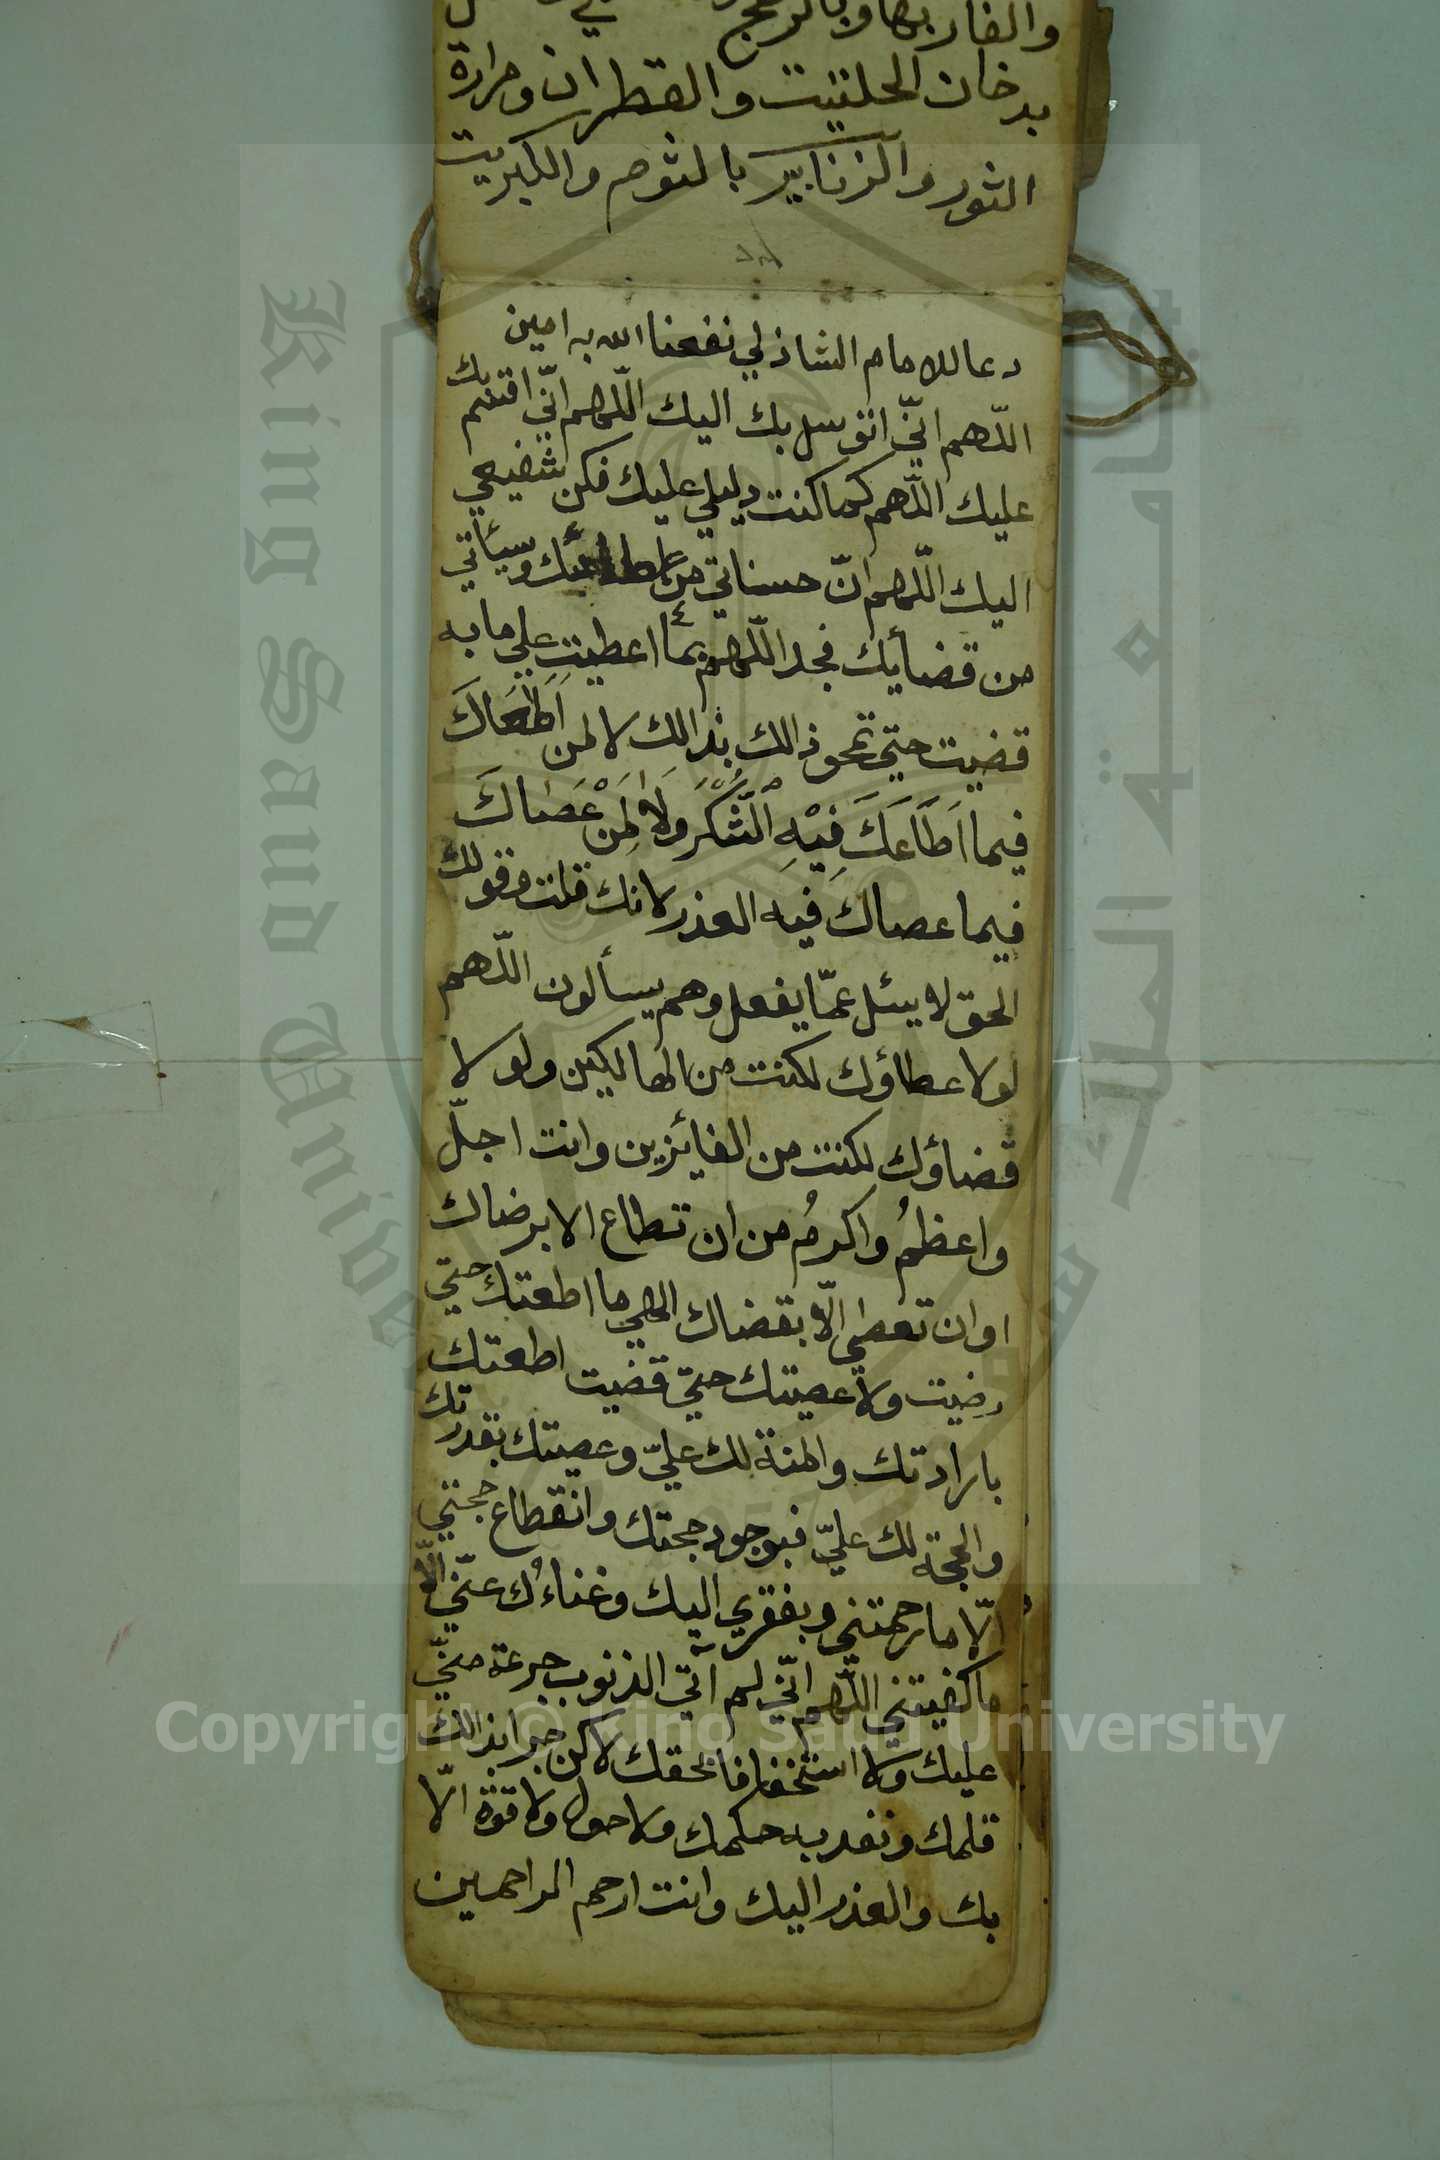 والفار بها وبالزعج في
بدخان الحلتيت والقطران ومرارة
الثور والزنابير بالثوم والكبريت
دعا للامام الشاذلي نفعنا الله به امين
اللّهم انّي اتوسل بك اليك اللّهم انّي اقسم بك
عليك اللّهم كما كنت دليلي عليك فكن شفيعي
اليك اللّهم انّ حسناتي من عطائك وسيئاتي
من قضايك فجد اللّهم بما اعطيت علي ما به
قضيت حتي تمحو ذالك بذالك لا لمن اطاعك
فيما اَطَاعَكَ فِيْهِ الشُّكْرُ وَلَا لِمَنْ عَصَاكَ
فيما عصاك فيه العذر لانك قلت وقولك
الحق لا يسئل عمّا يفعل وهم يسألون اللّهم
لولا عطاؤك لكنت من الهالكين ولولا
قضاؤك لكنت من الفايزين وانت اجلّ
واعظمُ واكرمُ من ان تطاع الا برضاك
او ان تعصي الّا بقضاك الهي ما اطعتك حتي
رضيت ولا عصيتك حتي قضيت اطعتك
بارادتك والمنة لك عليّ وعصيتك بقدرتك
والحجة لك عليّ فبوجود حجتك وانقطاع حجتي
الّا ما رحمتني وبفقري اليك وغناءُك عنّي الّا
ما كفيتني اللّهم انّي لم آتي الذنوب جرعة منّي
عليك ولا استخفافا بحقك لاكن جرا بذالك
قلمك ونفد به حكمك ولا حول ولا قوّة الّا
بك والعذر اليك وانت ارحم الراحمين
King Saud University
جامعة الملك سعود
1957
Copyright © King Saud University